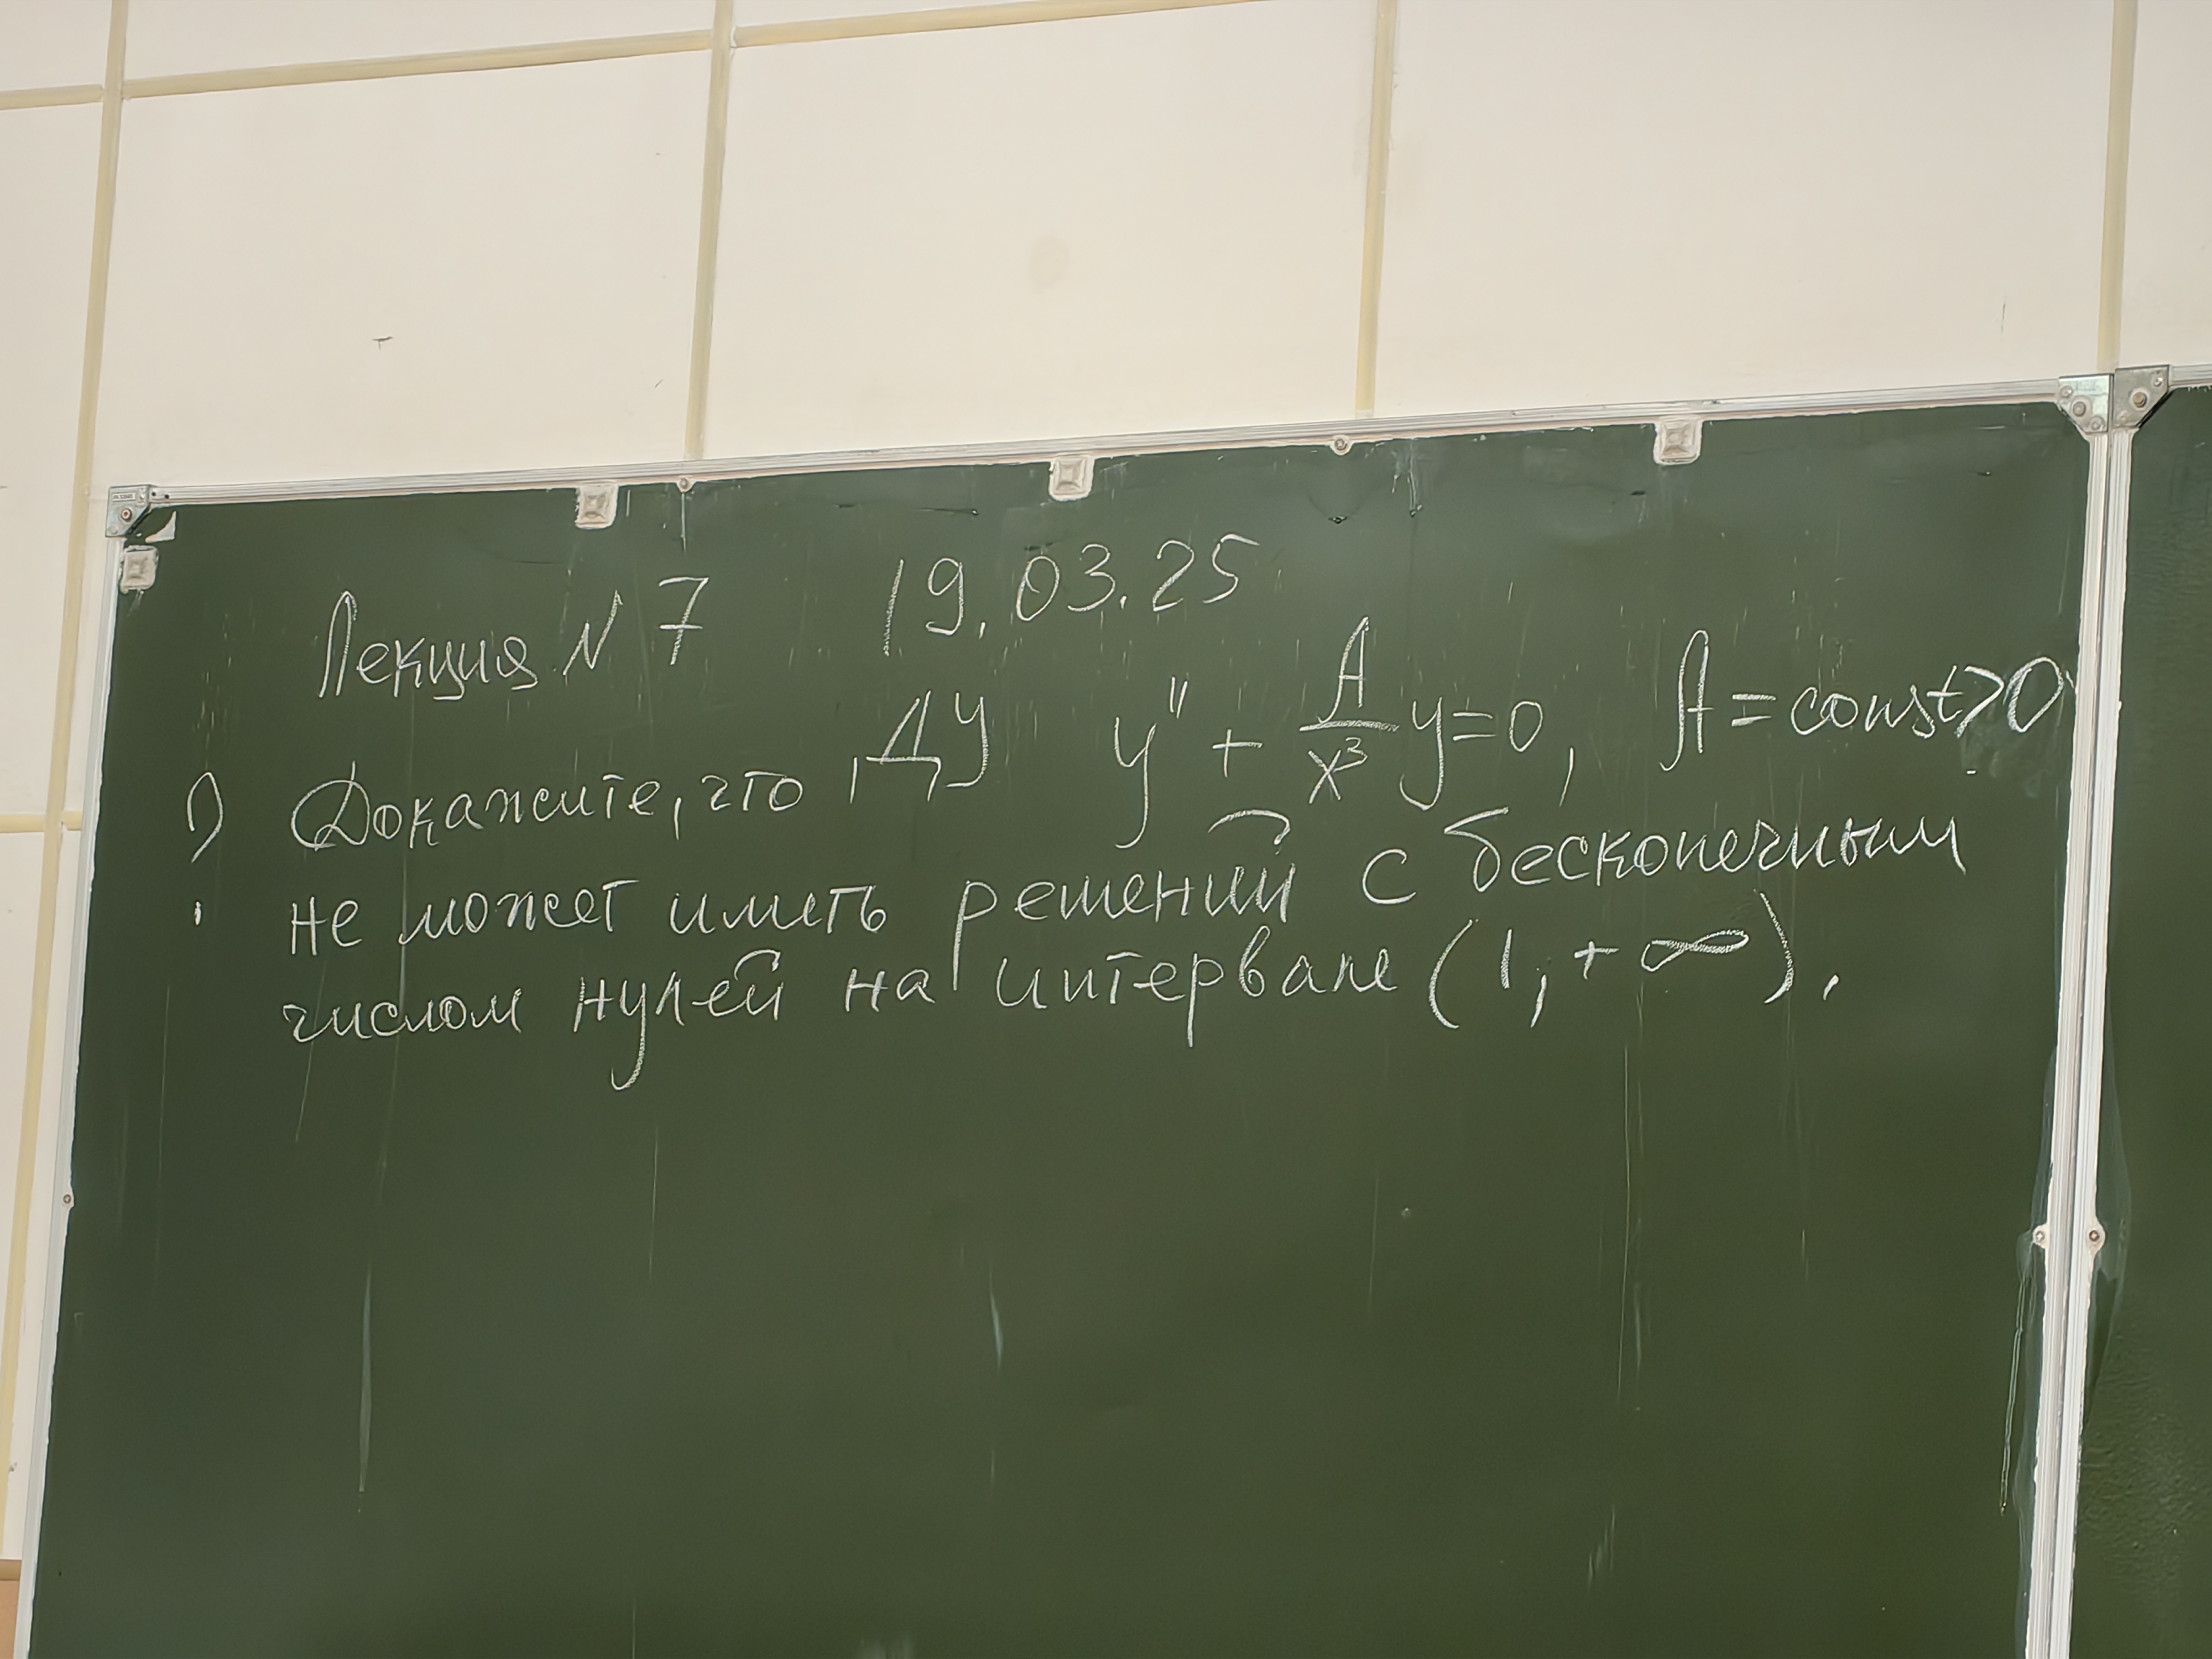 Лекция N 7 19.03.25
? Докажите, что ДУ y'' + A/x³ y = 0, A = const > 0
не может иметь решений с бесконечным
числом нулей на интервале (1, +∞).